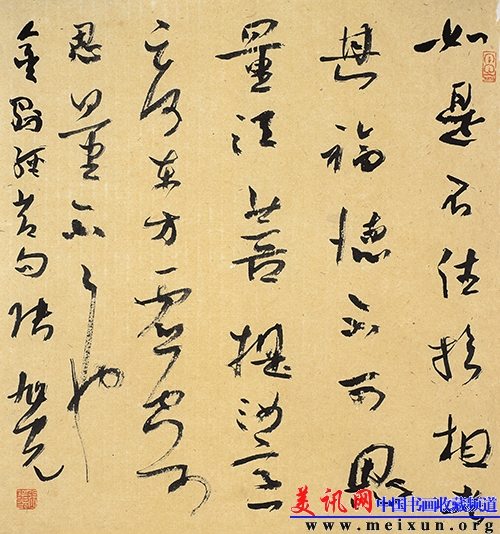 如是不住於相
其福德不可思
量須菩提於意
云何東方虛空可
思量不不也
金剛經句張旭光
美讯网 中国书画收藏频道
www.meixun.org